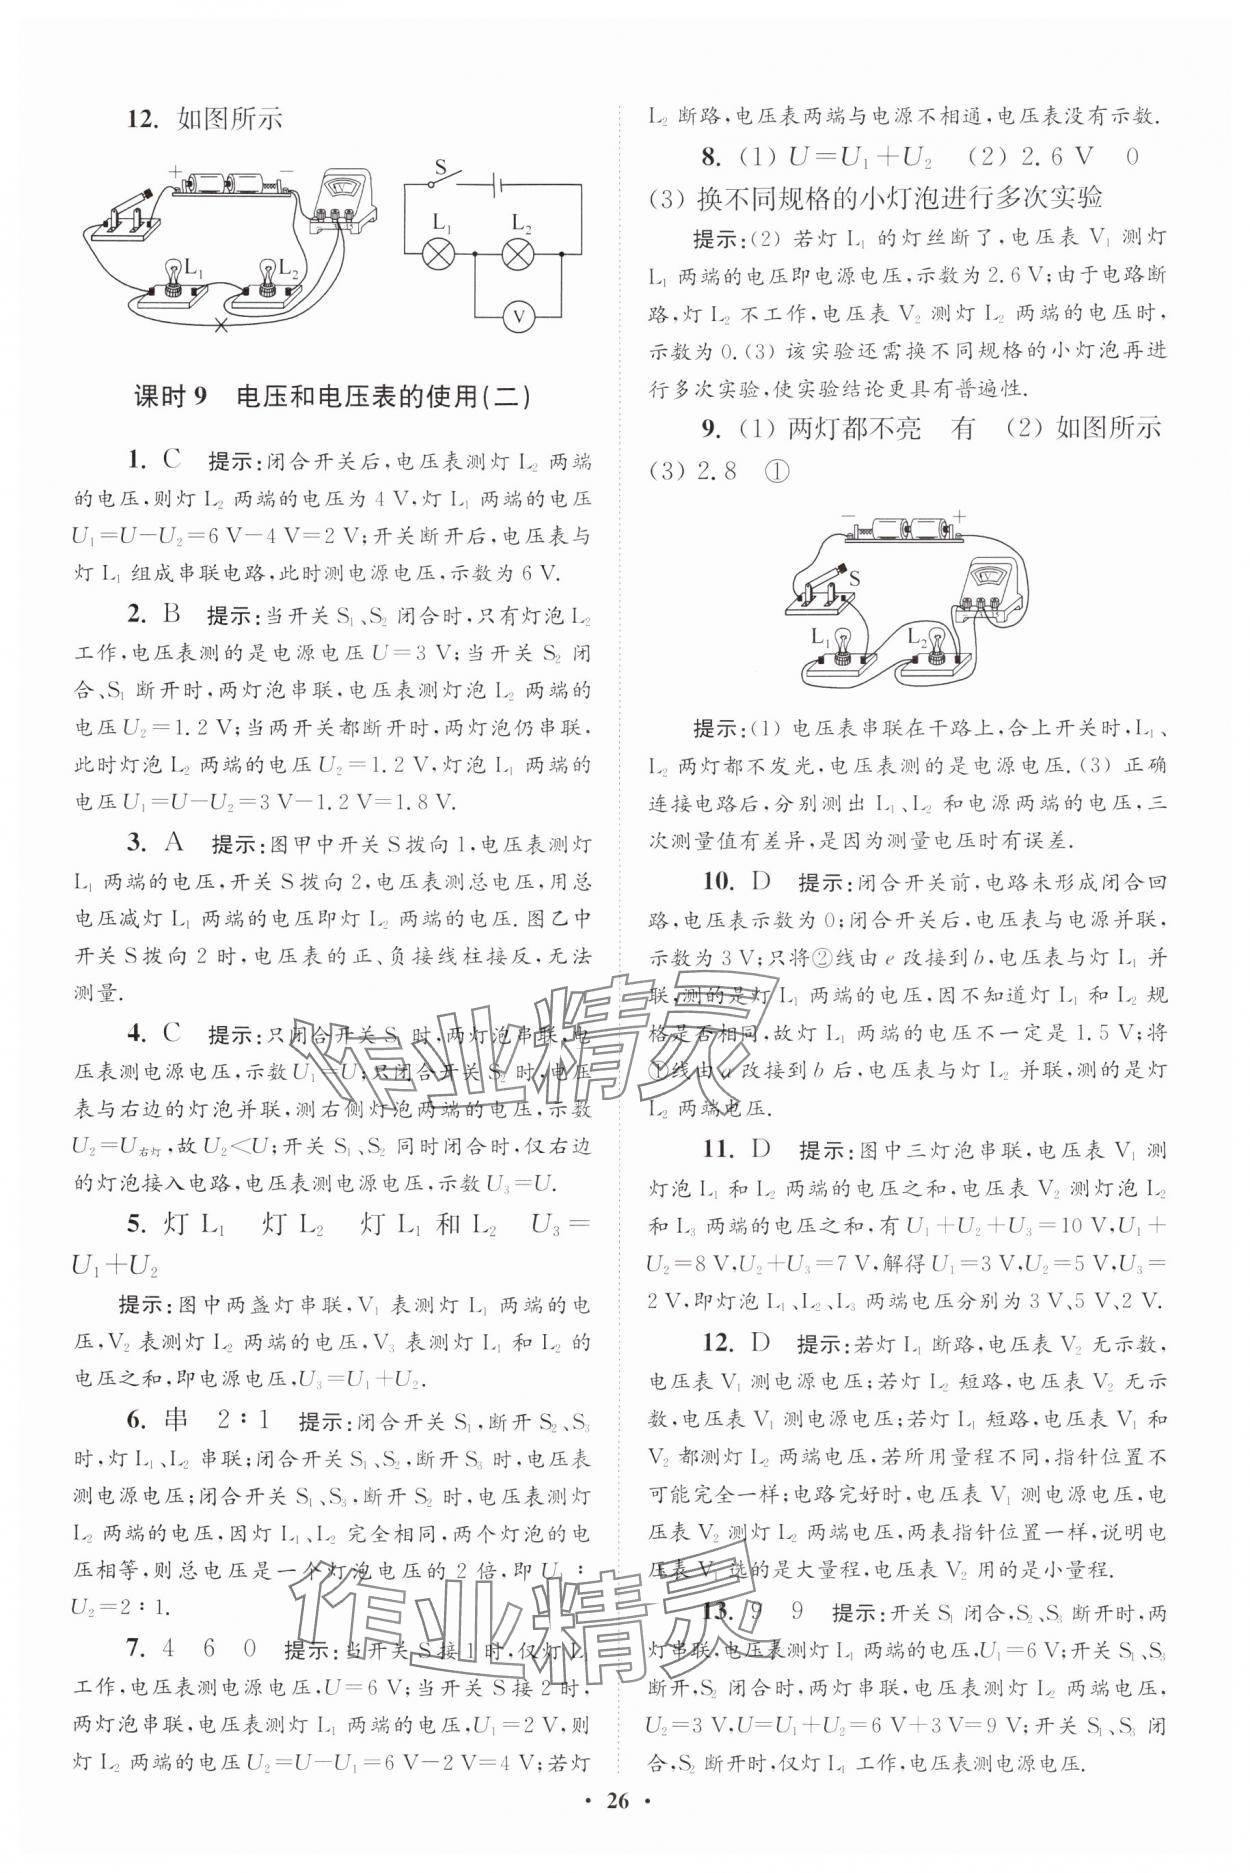 12. 如图所示
+ −
L₁ L₂
S
L₁ L₂
V
课时 9 电压和电压表的使用(二)
1. C 提示:闭合开关后,电压表测灯 L₂ 两端
的电压,则灯 L₂ 两端的电压为 4 V,灯 L₁ 两端的电压
U₁=U−U₂=6 V−4 V=2 V;开关断开后,电压表与
灯 L₁ 组成串联电路,此时测电源电压,示数为 6 V.
2. B 提示:当开关 S₁、S₂ 闭合时,只有灯泡 L₂
工作,电压表测的是电源电压 U=3 V;当开关 S₂ 闭
合、S₁ 断开时,两灯泡串联,电压表测灯泡 L₂ 两端的
电压 U₂=1.2 V;当两开关都断开时,两灯泡仍串联,
此时灯泡 L₂ 两端的电压 U₂=1.2 V,灯泡 L₁ 两端的
电压 U₁=U−U₂=3 V−1.2 V=1.8 V.
3. A 提示:图甲中开关 S 拨向 1,电压表测灯
L₁ 两端的电压,开关 S 拨向 2,电压表测总电压,用总
电压减灯 L₁ 两端的电压即灯 L₂ 两端的电压.图乙中
开关 S 拨向 2 时,电压表的正、负接线柱接反,无法
测量.
4. C 提示:只闭合开关 S₁ 时,两灯泡串联,电
压表测电源电压,示数 U₁=U;只闭合开关 S₂ 时,电压
表与右边的灯泡并联,测右侧灯泡两端的电压,示数
U₂=U右灯,故 U₂<U;开关 S₁、S₂ 同时闭合时,仅右边
的灯泡接入电路,电压表测电源电压,示数 U₃=U.
5. 灯 L₁ 灯 L₂ 灯 L₁ 和 L₂ U₃=
U₁+U₂
提示:图中两盏灯串联,V₁ 表测灯 L₁ 两端的电
压,V₂ 表测灯 L₂ 两端的电压,V₃ 表测灯 L₁ 和 L₂ 的
电压之和,即电源电压,U₃=U₁+U₂.
6. 串 2∶1 提示:闭合开关 S₁,断开 S₂、S₃
时,灯 L₁、L₂ 串联;闭合开关 S₁、S₂,断开 S₃ 时,电压表
测电源电压;闭合开关 S₁、S₃,断开 S₂ 时,电压表测灯
L₂ 两端的电压,因灯 L₁、L₂ 完全相同,两个灯泡的电
压相等,则总电压是一个灯泡电压的 2 倍,即 U₁∶
U₂=2∶1.
7. 4 6 0 提示:当开关 S 接 1 时,仅灯 L₂
工作,电压表测电源电压,U=6 V;当开关 S 接 2 时,
两灯泡串联,电压表测灯 L₁ 两端的电压,U₁=2 V,则
灯 L₂ 两端的电压 U₂=U−U₁=6 V−2 V=4 V;若灯
L₂ 断路,电压表两端与电源不相通,电压表没有示数.
8. (1) U=U₁+U₂ (2) 2.6 V 0
(3) 换不同规格的小灯泡进行多次实验
提示:(2) 若灯 L₁ 的灯丝断了,电压表 V₁ 测灯
L₁ 两端的电压即电源电压,示数为 2.6 V;由于电路断
路,灯 L₂ 不工作,电压表 V₂ 测灯 L₂ 两端的电压时,
示数为 0.(3) 该实验还需换不同规格的小灯泡再进
行多次实验,使实验结论更具有普遍性.
9. (1) 两灯都不亮 有 (2) 如图所示
(3) 2.8 ①
− +
S
L₁ L₂
提示:(1) 电压表串联在干路上,合上开关时,L₁、
L₂ 两灯都不发光,电压表测的是电源电压.(3) 正确
连接电路后,分别测出 L₁、L₂ 和电源两端的电压,三
次测量值有差异,是因为测量电压时有误差.
10. D 提示:闭合开关前,电路未形成闭合回
路,电压表示数为 0;闭合开关后,电压表与电源并联,
示数为 3 V;只将②线由 e 改接到 b,电压表与灯 L₁ 并
联,测的是灯 L₁ 两端的电压,因不知道灯 L₁ 和 L₂ 规
格是否相同,故灯 L₁ 两端的电压不一定是 1.5 V;将
①线由 a 改接到 b 后,电压表与灯 L₂ 并联,测的是灯
L₂ 两端电压.
11. D 提示:图中三灯泡串联,电压表 V₁ 测
灯泡 L₁ 和 L₂ 两端的电压之和,电压表 V₂ 测灯泡 L₂
和 L₃ 两端的电压之和,有 U₁+U₂+U₃=10 V,U₁+
U₂=8 V,U₂+U₃=7 V,解得 U₁=3 V,U₂=5 V,U₃=
2 V,即灯泡 L₁、L₂、L₃ 两端电压分别为 3 V、5 V、2 V.
12. D 提示:若灯 L₁ 断路,电压表 V₂ 无示数,
电压表 V₁ 测电源电压;若灯 L₂ 短路,电压表 V₂ 无示
数,电压表 V₁ 测电源电压;若灯 L₁ 短路,电压表 V₁ 和
V₂ 都测灯 L₂ 两端电压,若所用量程不同,指针位置不
可能完全一样;电路完好时,电压表 V₁ 测电源电压,电
压表 V₂ 测灯 L₂ 两端电压,两表指针位置一样,说明电
压表 V₁ 选的是大量程,电压表 V₂ 用的是小量程.
13. 9 9 提示:开关 S₁ 闭合,S₂、S₃ 断开时,两
灯串联,电压表测灯 L₁ 两端的电压,U₁=6 V;开关 S₁、S₃
断开,S₂ 闭合时,两灯串联,电压表测灯 L₂ 两端电压,
U₂=3 V,U=U₁+U₂=6 V+3 V=9 V;开关 S₁、S₃ 闭
合,S₂ 断开时,仅灯 L₁ 工作,电压表测电源电压.
• 26 •
作业精灵
作业精灵